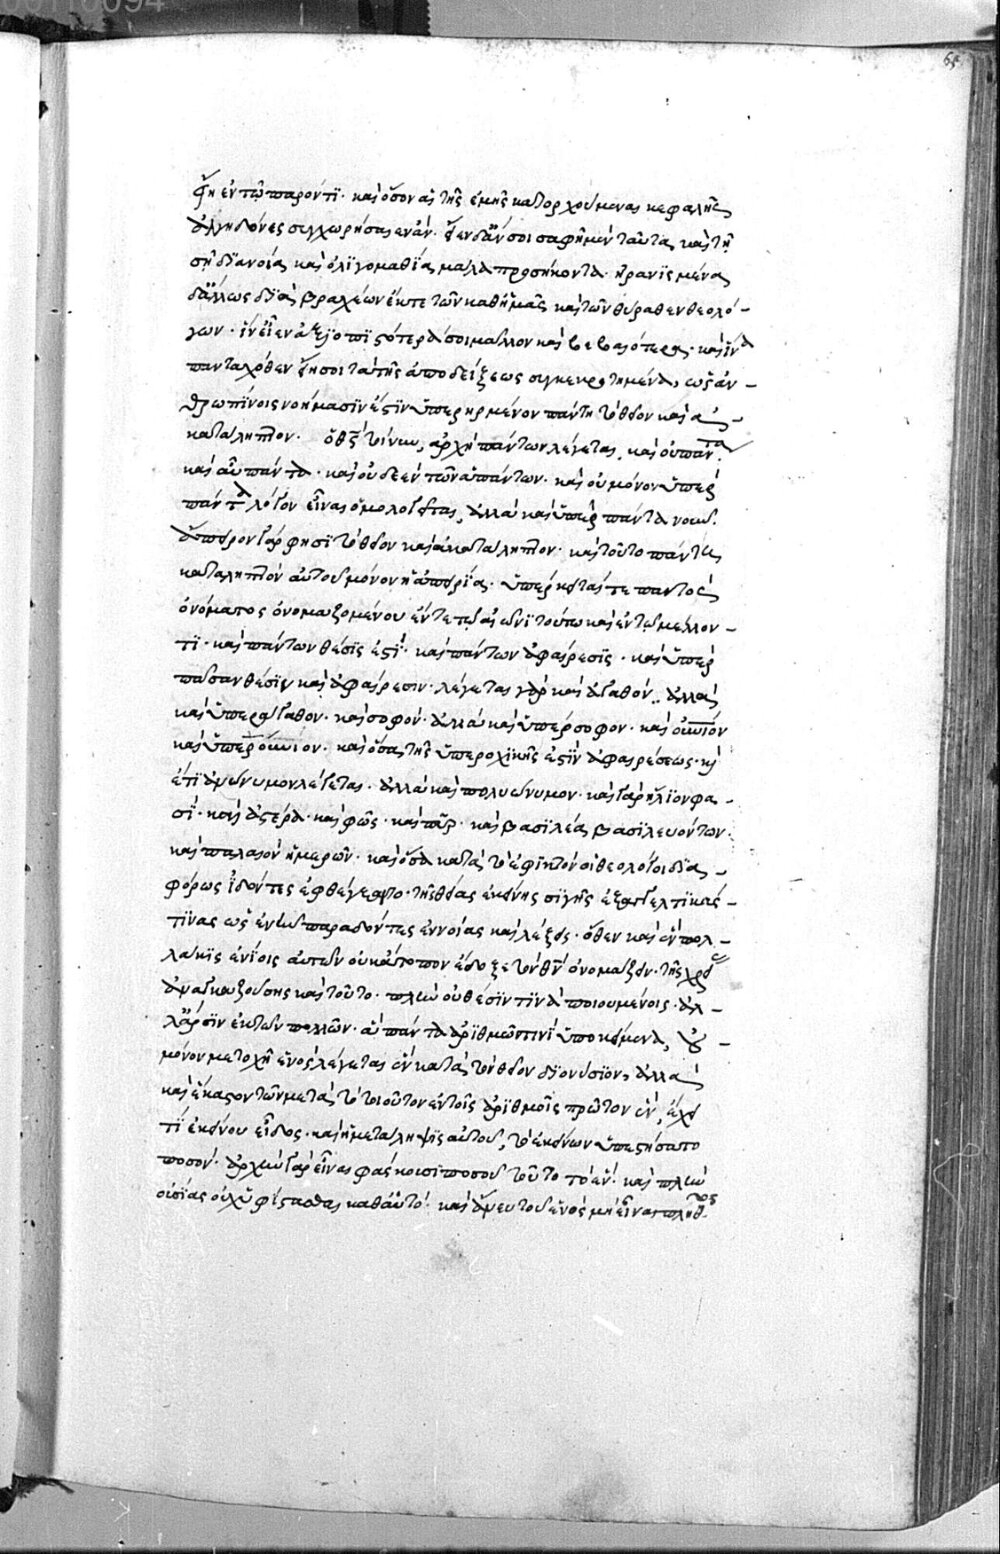 ἐν τῷ παρόντι· καὶ ὅσον αἱ τῆς ἐμῆς κατορχούμεναι κεφαλῆς
ἀλγηδόνες συγχωρήσαιεν ἄν· σοι σαφῆ μὲν ταῦτα, καὶ τῇ
σῇ διανοίᾳ καὶ ὀλιγομαθίᾳ μάλα προσήκοντα· ἠρανισμένα
δ' ἄλλως διὰ βραχέων ἔκ τε τῶν καθ' ἡμᾶς καὶ τῶν θύραθεν θεολό-
γων· ἵν' εἶεν ἀξιοπιστότερά σοι μᾶλλον καὶ βεβαιότερα· καὶ ἵνα
πανταχόθεν ᾖ σοι τὰ τῆς ἀποδείξεως συγκεκροτημένα, ὡς ἀν-
θρωπίνοις νοήμασίν ἐστιν ὑπερηρμένον πάντη τὸ θεῖον καὶ ἀ-
κατάληπτον· ὁ θεὸς τοίνυν, ἀρχὴ πάντων λέγεται, καὶ οὐ πάντα·
καὶ αὖ πάντα· καὶ οὐδὲ ἓν τῶν ἁπάντων· καὶ οὐ μόνον ὑπὲρ
πάντα λόγον εἶναι ὁμολογεῖται, ἀλλὰ καὶ ὑπὲρ πάντα νοῦν·
ἄπειρον γάρ φησι τὸ θεῖον καὶ ἀκατάληπτον· καὶ τοῦτο πάντῃ
καταληπτὸν αὐτοῦ μόνον ἡ ἀπειρία· ὑπέρκειταί τε παντὸς
ὀνόματος ὀνομαζομένου ἔν τε τῷ αἰῶνι τούτῳ καὶ ἐν τῷ μέλλον-
τι· καὶ πάντων θέσις ἐστί· καὶ πάντων ἀφαίρεσις· καὶ ὑπὲρ
πᾶσαν θέσιν καὶ ἀφαίρεσιν· λέγεται γὰρ καὶ ἀγαθόν· ἀλλὰ
καὶ ὑπεράγαθον· καὶ σοφόν· ἀλλὰ καὶ ὑπέρσοφον· καὶ
καὶ ὅσα τῆς ὑπεροχικῆς ἐστὶν ἀφαιρέσεως· καὶ
ἔτι ἀνώνυμον λέγεται· ἀλλὰ καὶ πολυώνυμον· καὶ γὰρ ἥλιον φα-
σί· καὶ ἀστέρα· καὶ φῶς· καὶ πῦρ· καὶ βασιλέα βασιλευόντων·
καὶ παλαιὸν ἡμερῶν· καὶ ὅσα κατὰ τὸ ἐφικτὸν οἱ θεολόγοι δια-
φόρως ἰδόντες ἐφθέγξαντο· τῆς θείας ἐκείνης σιγῆς ἐξαγγελτικάς
τινας ὡς ἐνὸν παραδόντες ἐννοίας καὶ λέξεις· ὅθεν καὶ ἓν πολ-
λάκις ἐνίοις αὐτῶν οὐκ ἄτοπον ἔδοξε τὸν θεὸν ὀνομάζειν· τῆς χρείας
ἀναγκαζούσης καὶ τοῦτο· πλὴν οὐ θέσιν τινὰ ποιουμένοις· ἀλ-
λ' ἄρσιν ἐκ τῶν πολλῶν· ἅπαντα ἀριθμῷ τινὶ ὑποκείμενα, οὐ
μόνον μετοχῇ ἑνὸς λέγεται ἓν κατὰ τὸν θεῖον διονύσιον, ἀλλὰ
καὶ ἕκαστον τῶν μετὰ τὸ τοιοῦτον ἐν τοῖς ἀριθμοῖς πρῶτον ἕν, ἔχει
τι ἐκείνου εἶδος· καὶ ἡ μετάληψις αὐτοῦ, τὸ ἐκείνων ὑπεστήσατο
ποσόν· ἀρχὴν γὰρ εἶναι φάσκουσι ποσοῦ τοῦτο τὸ ἕν· καὶ πλὴν
οὐσίας οὐχ ὑφίστασθαι καθ' αὑτό· καὶ ἄνευ τοῦ ἑνὸς μὴ εἶναι πλῆθος